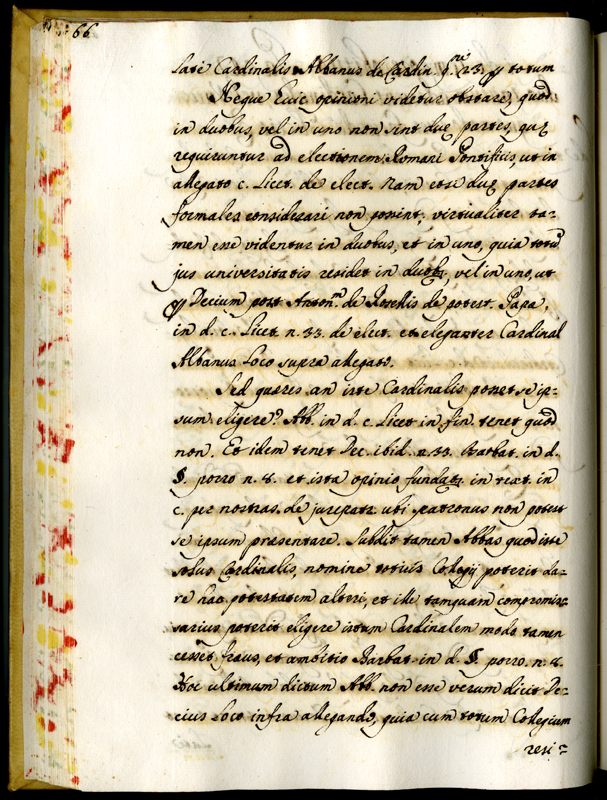 66
late Cardinalis Albanus de Cardin. q. 23. per totum
Neque huic opinioni videtur obstare, quod
in duobus, vel in uno non sint duę partes, quę
requiruntur ad electionem Romani Pontificis, ut in
allegato c. Licet. de elect. Nam etsi duę partes
formales considerari non possint; virtualiter ta-
men esse videntur in duobus, et in uno, quia totum
jus universitatis residet in duobus, vel in uno, ut
per Decium post Anton.m de Rosellis de potest. Papę,
in d. c. Licet n. 33. de elect. et eleganter Cardinal
Albanus loco supra allegato.
Sed quęres an iste Cardinalis posset se ip-
sum eligere? Abb. in d. c. Licet in fin. tenet quod
non. Et idem tenet Dec. ibid. n. 33. Barbat. in d.
§. porro n. 8. et ista opinio fundatur in text. in
c. per nostras. de jurepatr. ubi patronus non potest
se ipsum pręsentare. Subdit tamen Abbas quod iste
solus Cardinalis, nomine totius Collegij poterit da-
re hac potestatem alteri, et ille tamquam compromis-
sarius poterit eligere istum Cardinalem modo tamen
cesset fraus, et ambitio Barbat. in d. §. porro. n. 8.
Hoc ultimum dictum Abb. non esse verum dicit De-
cius loco infra allegando, quia cum totum Collegium
resi-